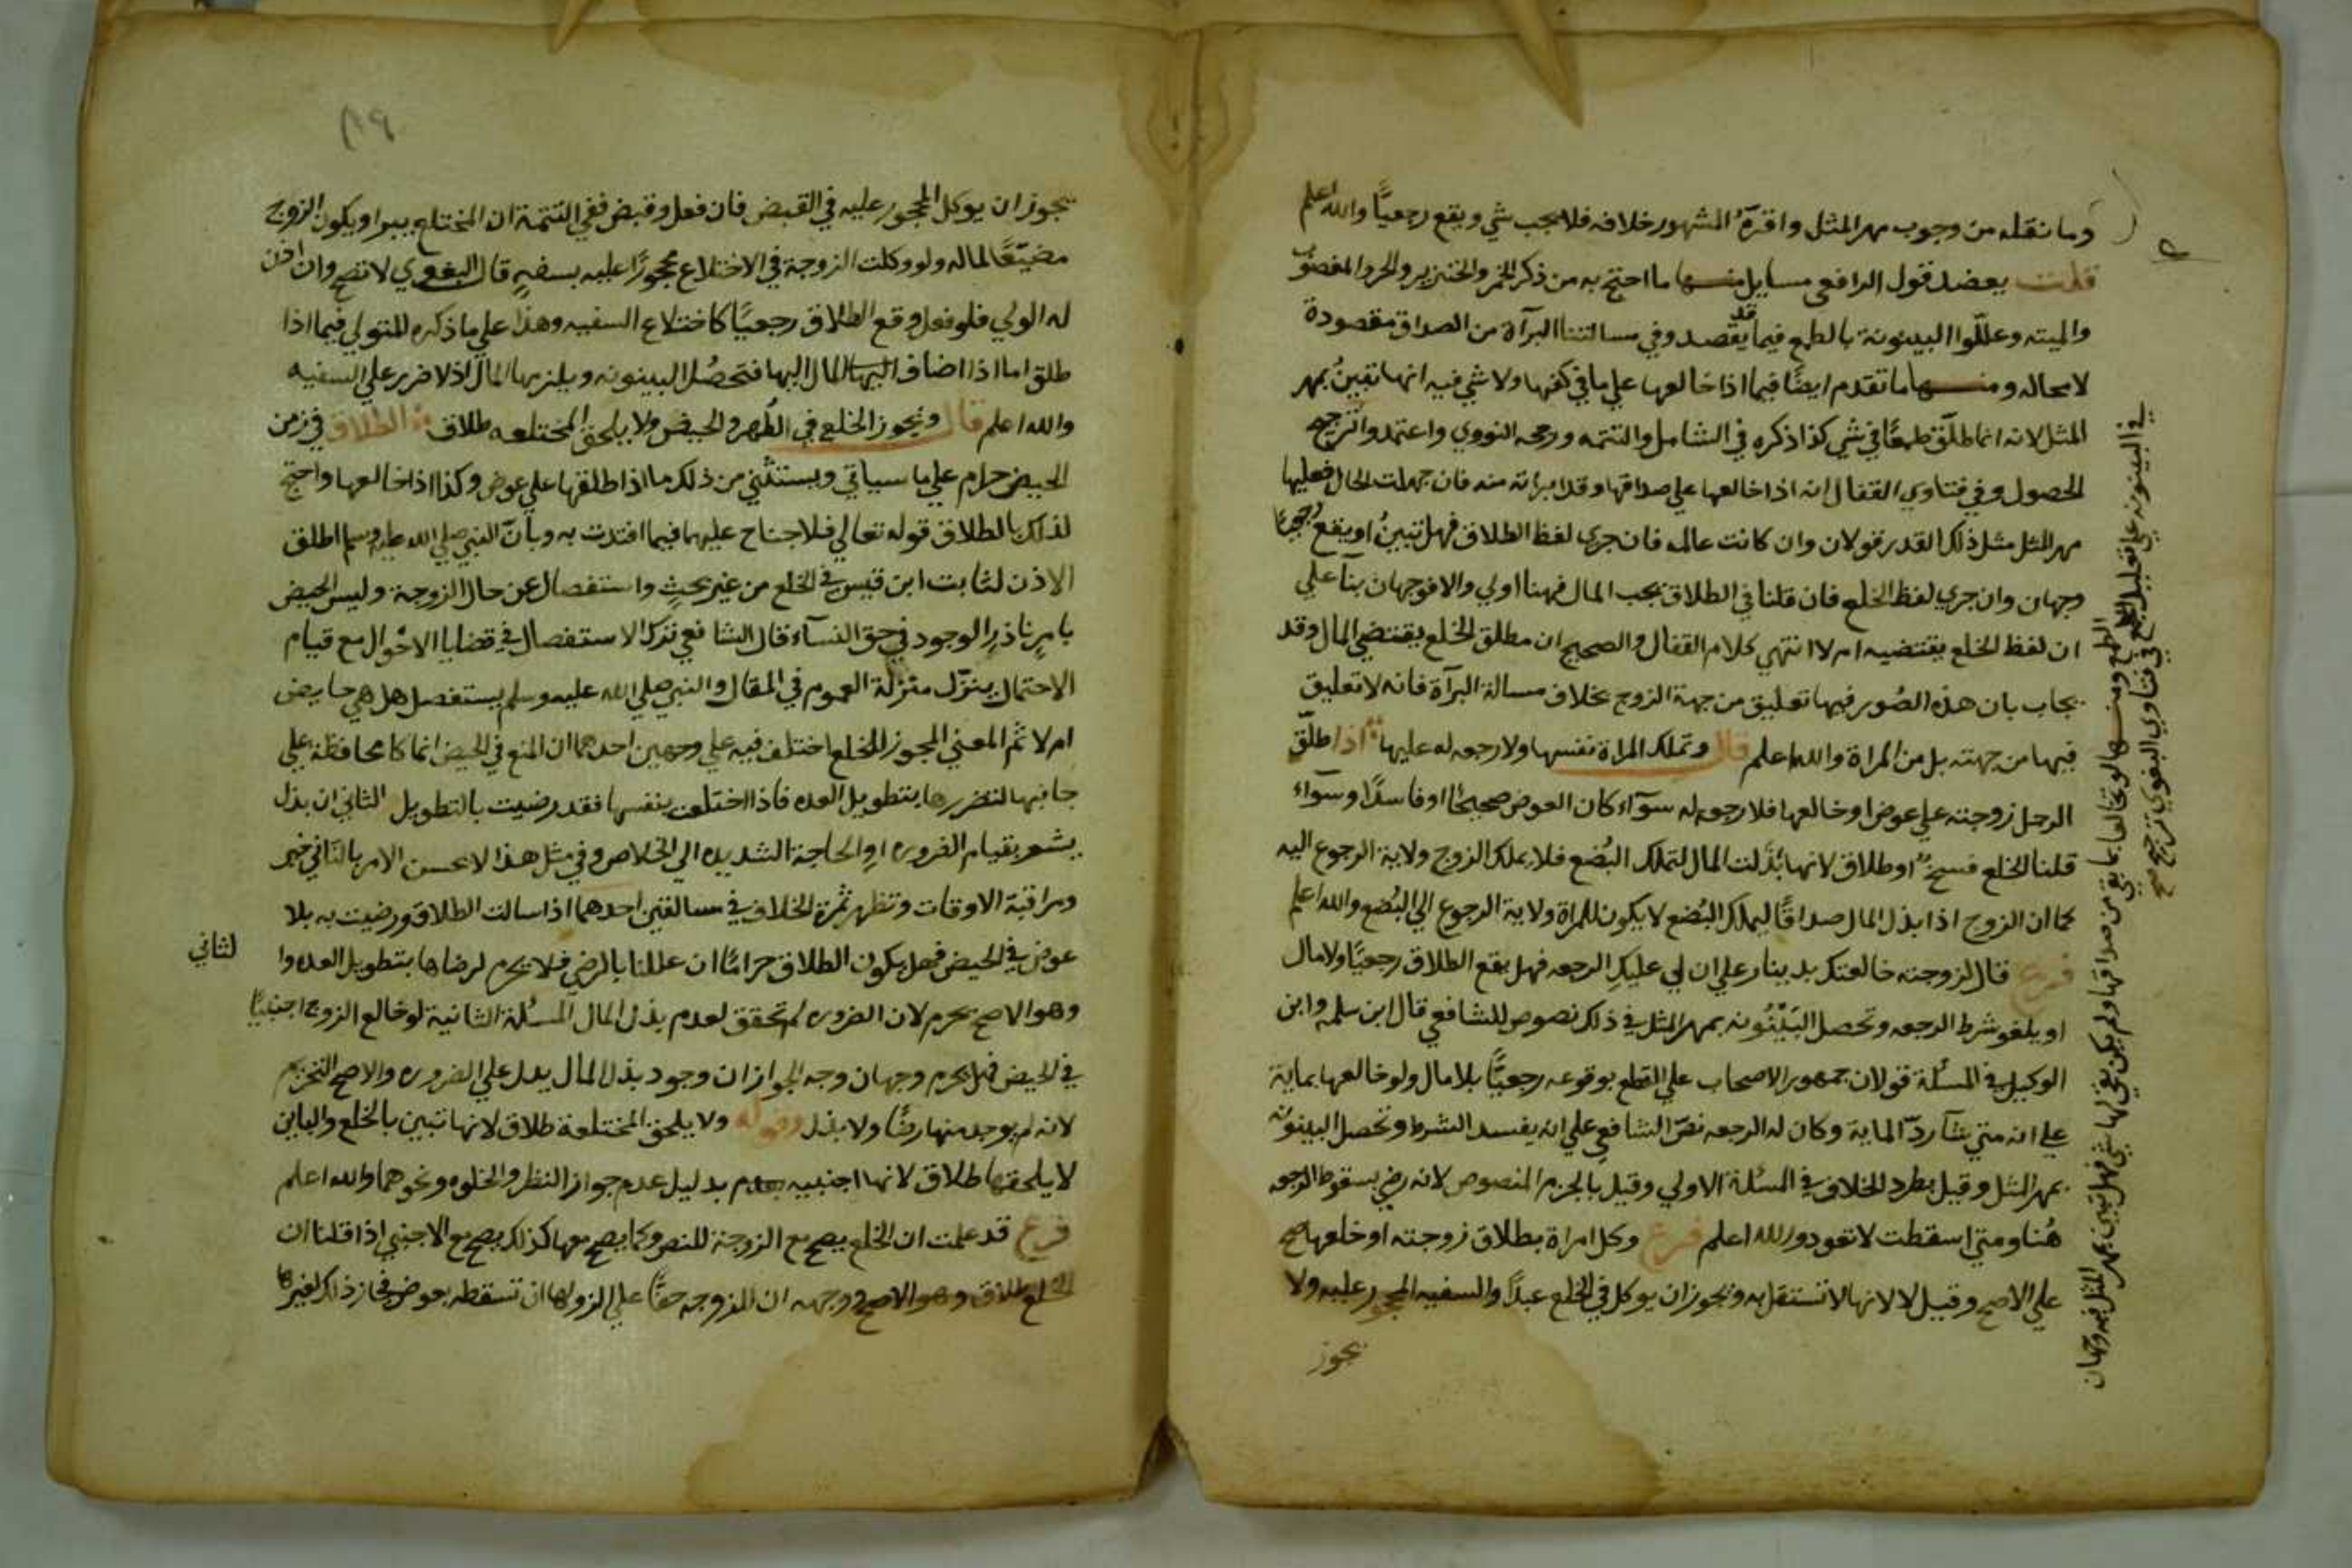 وما نقله من وجوب مهر المثل واقره المشهور خلافه فلا يجب شي ويقع رجعيًا والله اعلم
قلت يعضد قول الرافعي مسايل منها ما احتج به من ذكر الخمر والخنزير والحر والمغصوب
والميته وعللّوا البينونة بالطمع فيما قد يقصد وفي مسالتنا البرآة من الصداق مقصودة
لا محاله ومنها ما تقدم ايضًا فيما اذا خالعها علي ما في كفها ولا شي فيه انها تبينُ بمهر
المثل لانه انما طلّق طمعًا في شي كذا ذكره في الشامل والتتمه ورجحه النووي واعتمد والترجيح
الحصول وفي فتاوي القفال انه اذا خالعها علي صداقها وقد ابراته منه فان جهلت الحال فعليها
مهر المثل مثل ذلك القدر قولان وان كانت عالمه فان جري لفظ الطلاق فهل تبينُ او يقع رجعيًا
وجهان وان جري لفظ الخلع فان قلنا في الطلاق يجب المال فهنا اولي والا فوجهان بنآ علي
ان لفظ الخلع يقتضيه ام لا انتهي كلام القفال والصحيح ان مطلق الخلع يقتضي المال وقد
يجاب بان هذه الصُور فيها تعليق من جهة الزوج بخلاف مسالة البرآة فانه لا تعليق
فيها من جهته بل من المراة والله اعلم قال وتملك المراة نفسها ولا رجعه له عليها اذا طلّق
الرجل زوجته علي عوض او خالعها فلا رجعه له سوآء كان العوض صحيحًا او فاسدًا وسوآء
قلنا الخلع فسخ او طلاق لانها بذَلت المال لتملك البُضع فلا يملك الزوج ولاية الرجوع اليه
كما ان الزوج اذا بذل المال صداقًا ليملك البُضع لا يكون للمراة ولاية الرجوع الي البُضع والله اعلم
فرع قال لزوجته خالعتك بدينار علي ان لي عليكِ الرجعه فهل يقع الطلاق رجعيًا ولا مال
او يلغو شرط الرجعه وتحصل البَيْنُونه بمهر المثل في ذلك نصوص للشافعي قال ابن سلمه وابن
الوكيل في المسئلة قولان جمهور الاصحاب علي القطع بوقوعه رجعيًا بلا مال ولو خالعها بماية
علي انه متي شآ ردّ الماية وكان له الرجعه نصّ الشافعي علي انه يفسد الشرط وتحصل البينونه
بمهر المثل وقيل يطرد الخلاف في المسئلة الاولي وقيل بالجزم المنصوص لانه رضي بسقوط الرجعه
هُنا ومتي اسقطت لا تعود والله اعلم فرع وكل امراة بطلاق زوجته او خلعها صح
علي الاصح وقيل لا لانها لا تستقل به ويجوز ان يوكل في الخلع عبدًا والسفيه المحجور عليه ولا
يجوز
الطمع ومنها لو تخالعا بما بقي من صداقها ولم يكن بقي لها شي فهل تبين بمهر المثل فيه وجهان
في البينونه علي تعليل في فتاوي البغوي ترجيح صح
يجوز ان يوكل المحجور عليه في القبض فان فعل وقبض ففي التتمة ان المختلع يبرا ويكون الزوج
مضيّعًا لماله ولو وكلت الزوجة في الاختلاع محجورًا عليه بسفهٍ قال البغوي لا تصح وان اذن
له الولي فلو فعل وقع الطلاق رجعيًا كاختلاع السفيه وهذا علي ما ذكره المتولي فيما اذا
طلق اما اذا اضاف المال اليها فتحصُل البينونه ويلزمها المال اذ لا ضرر علي السفيه
والله اعلم قال ويجوز الخلع في الطُهر والحيض ولا يلحق المختلعه طلاق الطلاق في زمن
الحيض حرام علي ما سياتي ويستثني من ذلك ما اذا طلقها علي عوض وكذا اذا خالعها واحتج
لذلك بالطلاق قوله تعالي فلا جناح عليهما فيما افتدت به وبانّ النبي صلي الله عليه وسلم اطلق
الاذن لثابت ابن قيس في الخلع من غير بحثٍ واستفصال عن حال الزوجة وليس الحيض
بامرٍ ناذرِ الوجود في حق النسآء قال الشافعي ترك الاستفصال في قضايا الاحوال مع قيام
الاحتمال ينزّل منزلة العموم في المقال والنبي صلي الله عليه وسلم لم يستفصل هل هي حايض
ام لا ثم المعني المجوز للخلع اختلف فيه علي وجهين احدهما ان المنع في الحيض انما كا محافظة علي
جانبها لتضررها بتطويل العده فاذا اختلعت بنفسها فقد رضيت بالتطويل الثاني ان بذل
يشعر بقيام الضروره او الحاجة الشديده الي الخلاص وفي مثل هذا لا يحسن الامر بالتاني فيه
ومراقبة الاوقات وتظهر ثمرة الخلاف في مسالتين احدهما اذا سالت الطلاق ورضيت به بلا
عوض في الحيض فهل يكون الطلاق حرامًا ان عللنا بالرضي فلا يحرم لرضاها بتطويل العده وا
لثاني
وهو الاصح يحرم لان الضروره لم تحقق لعدم بذل المال المسئلة الثانية لو خالع الزوج اجنبيًا
في الحيض فهل يحرم وجهان وجه الجواز ان وجود بذل المال يدل علي الضروره والاصح التحريم
لانه لم يوجد منها رضًا ولا بذل وقوله ولا يلحق المختلعة طلاق لانها تبين بالخلع والباين
لا يلحقها طلاق لانها اجنبيه بدليل عدم جواز النظر والخلوه ونحوهما والله اعلم
فرع قد علمت ان الخلع يصح مع الزوجة للنص وكما يصح معها كذلك يصح مع الاجنبي اذا قلنا ان
الخلع طلاق وهو الاصح ووجهه ان للزوجه حقًا علي الزو لها ان تسقطه بعوض فجاز ذلك لغيرها